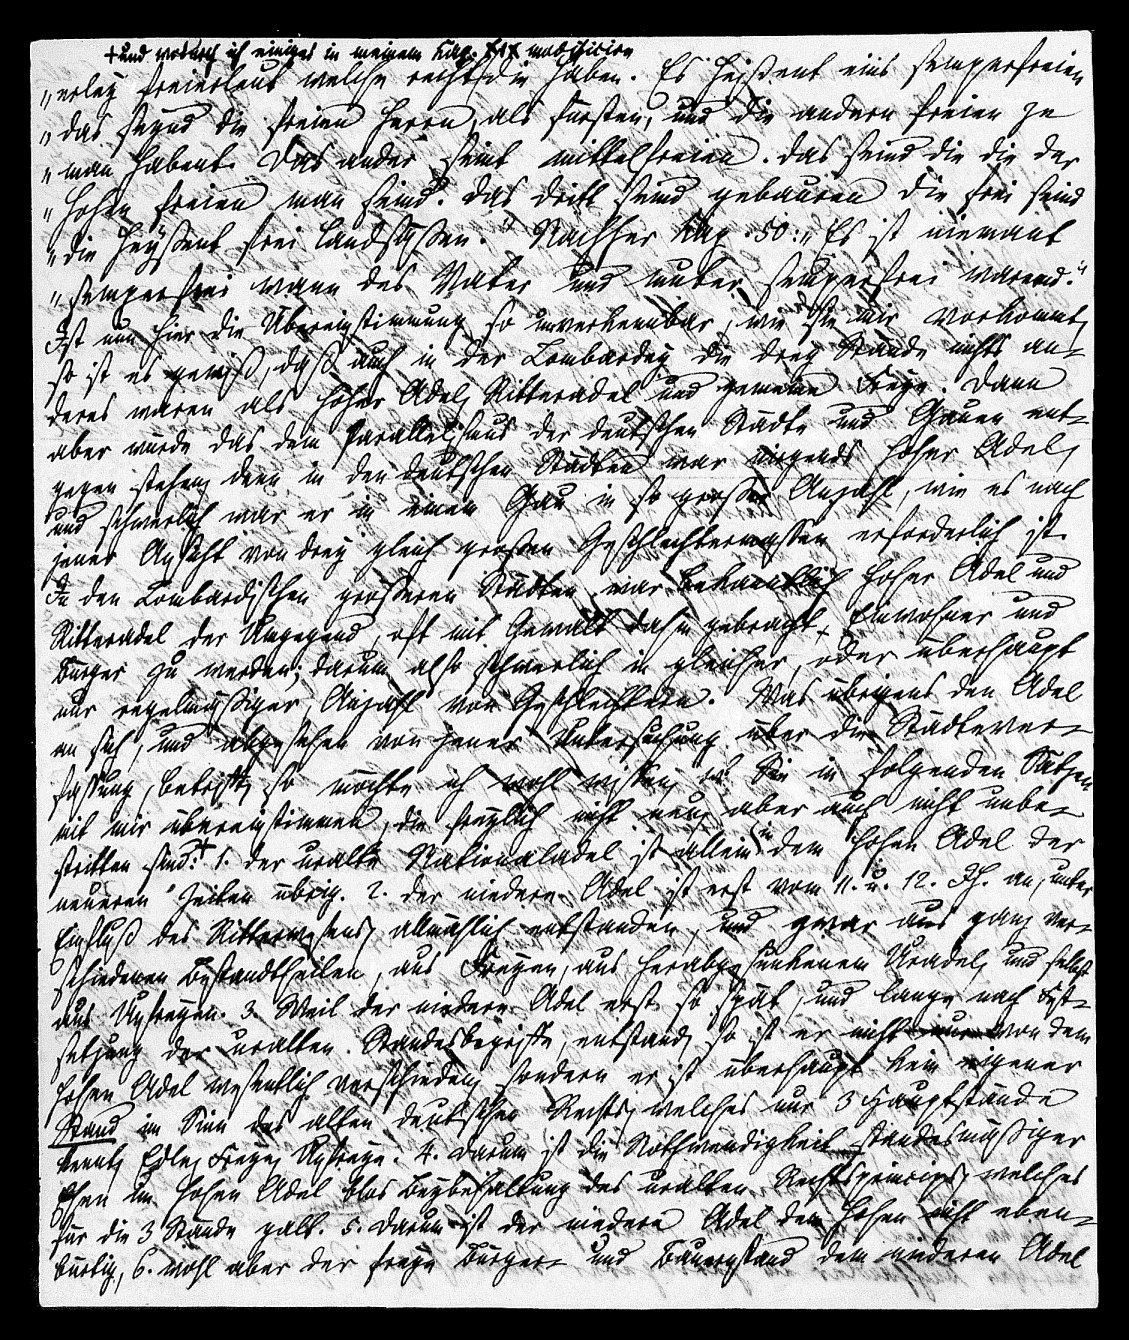 + und wodurch ich einiges in meinem Kap. XIX modificire
„erley freierleut welche recht die haben. Es heissent eins semperfreien
„das seynd die freien Herrn, als fürsten, und die andern freien ze
„man habent. Das ander seint mittelfreien. das seind die die der
„hohen freien man seind. das dritt seind gebauren die frei seind
„die heyssent frei Landsässen.“ Nachher Kap. 50: „Es ist niemant
„semperfrei wann des Vater und muter semperfrei warend.“
Ist nun hier die Übereinstimmung so unverkennbar, wie sie mir vorkommt,
so ist es gewiß, daß auch in der Lombardey die drey Stände nichts an-
deres waren als hoher Adel, Ritteradel und gemeine Freye. Dann
aber würde das dem Parallelismus der deutschen Städte und Gauen ent-
gegen stehen, denn in den deutschen Städten war nirgends hoher Adel,
und schwerlich war er in einem Gau in so großer Anzahl, wie es nach
jener Ansicht von drey gleich großen Geschlechtermassen erforderlich ist.
In den Lombardischen größeren Städten war bekanntlich hoher Adel und
Ritteradel der Umgegend, oft mit Gewalt dahin gebracht, Einwohner und
Bürger zu werden; darum also schwerlich in gleicher, oder überhaupt
nur regelmäßiger, Anzahl von Geschlechtern. Was übrigens den Adel
an sich, und abgesehen von jener Untersuchung über die Städtever-
fassung, betrifft, so möchte ich wohl wissen, ob Sie in folgenden Sätzen
mit mir übereinstimmen, die freylich nicht neu, aber auch nicht unbe-
stritten sind:+ 1. der uralte Nationaladel ist allein in dem hohen Adel der
neueren Zeiten übrig. 2. der niedere Adel ist erst vom 11. u. 12. Jh. an, unter
Einfluß des Ritterwesens, allmählich entstanden, und zwar aus ganz ver-
schiedenen Bestandtheilen, aus Freyen, aus herabgesunkenem Uradel, und selbst
aus Unfreyen. 3. Weil der niedere Adel erst so spät, und lange nach Fest-
setzung der uralten Standesbegriffe, entstand, so ist er nicht nur von dem
hohen Adel wesentlich verschieden, sondern er ist überhaupt kein eigener
Stand im Sinn des alten deutschen Rechts, welches nur 3 Hauptstände
kennt, Edle, Freye, Unfreye. 4. Darum ist die Nothwendigkeit standesmäßiger
Ehen im hohen Adel blos Beybehaltung des uralten Rechtsprincips, welches
für die 3 Stände galt. 5. Darum ist der niedere Adel dem hohen nicht eben-
bürtig, 6. wohl aber der freye Bürger- und Bauernstand dem niederen Adel